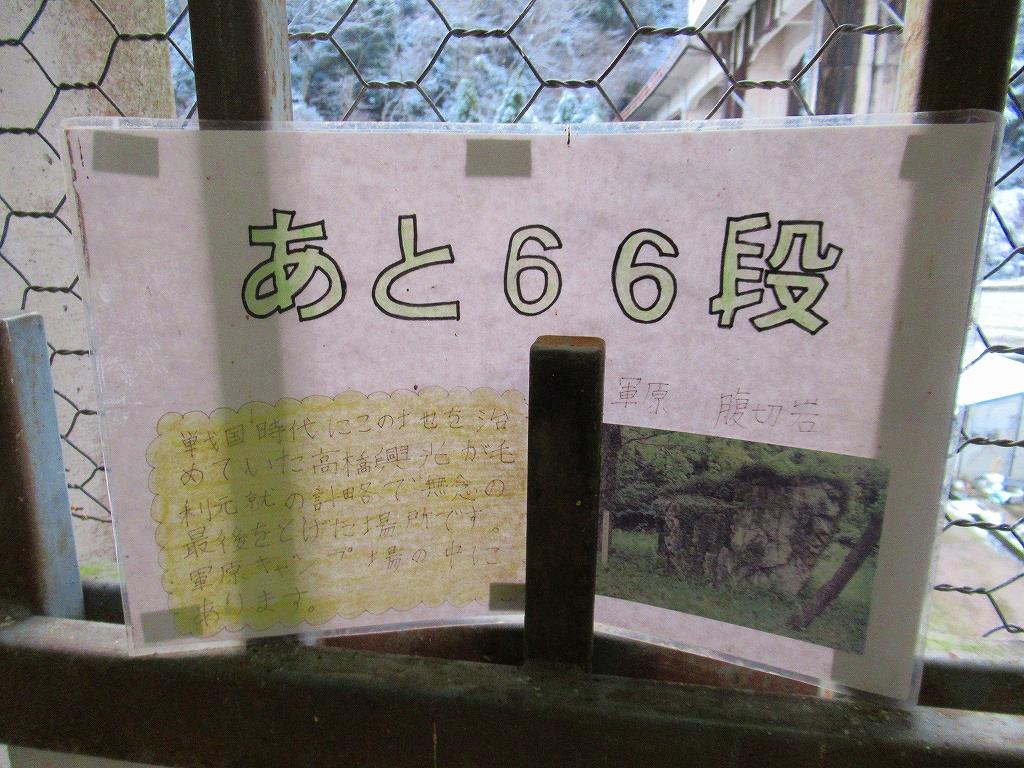 あと66段
軍原 腹切岩
戦国時代にこの地を治
めていた高橋興光が毛
利元就の計略で無念の
最後をとげた場所です。
軍原キャンプ場の中に
あります。